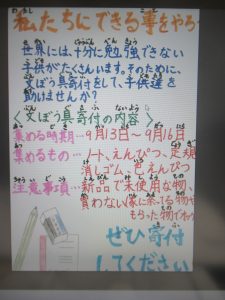 私たちにできる事をやろ
世界には、十分に勉強できない
子供がたくさんいます。そのために、
文ぼう具寄付をして、子供達を
助けませんか？
〈文ぼう具寄付の内容〉
集める時期…9月13日〜9月16日
集めるもの…ノート、えんぴつ、定規
消しゴム、色えんぴつ
注意事項…新品で未使用な物、
買わない(家に余てる物や
もらった物でオッ
ぜひ寄付
してください